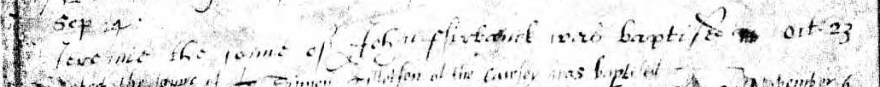 Sep 24
Jeremie the sonne of John Firbanck was baptised Oct 23
the sonne of Simon Tillotson of the Cawsey was baptised November 6